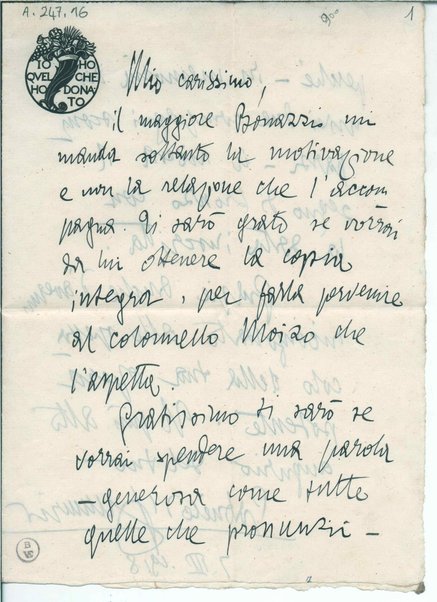 A. 247.16
9°°
1
IO HO
QVEL CHE
HO DONA
TO
Mio carissimo,
il maggiore Bonazzi mi
manda soltanto la motivazione
e non la relazione che l'accom
pagna. Ti sarò grato se vorrai
da lui ottenere la copia
integra, per farla pervenire
al colonnello Moizo che
l'aspetta.
Gratissimo ti sarò se
vorrai spendere una parola
– generosa come tutte
quelle che pronunzi –